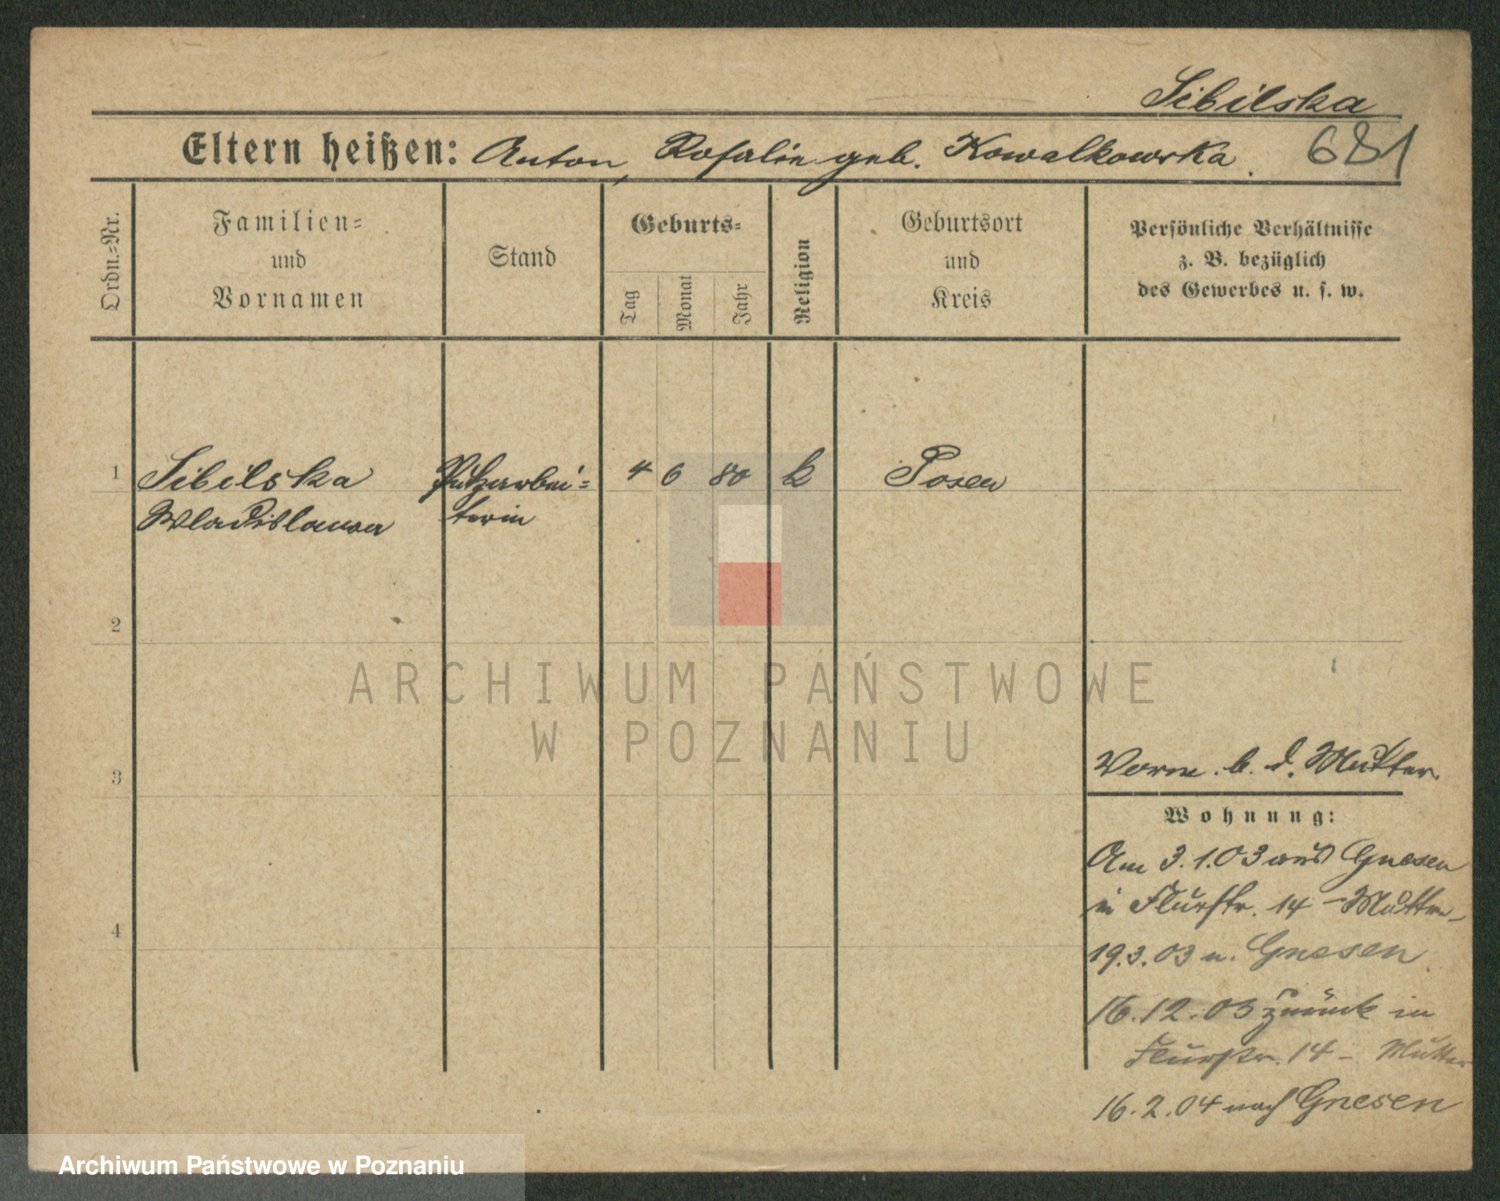 Sibilska
Eltern heißen: Anton, Rosalie geb. Kowalkowska.
681
Ordn.-Nr.
Familien-
und
Vornamen
Stand
Geburts-
Tag
Monat
Jahr
Religion
Geburtsort
und
Kreis
Persönliche Verhältnisse
z. B. bezüglich
des Gewerbes u. s. w.
1 Sibilska Putzarbei- 4 6 80 k Posen
Wladislawa terin
2
ARCHIWUM PAŃSTWOWE
W POZNANIU
3
Vorm. b. d. Mutter.
Wohnung:
Am 3.1.03 aus Gnesen
in Flurstr. 14 - Mutter -
4
19.3.03 n. Gnesen.
16.12.03 zurück in
Flurstr. 14 - Mutter
16.2.04 nach Gnesen
Archiwum Państwowe w Poznaniu